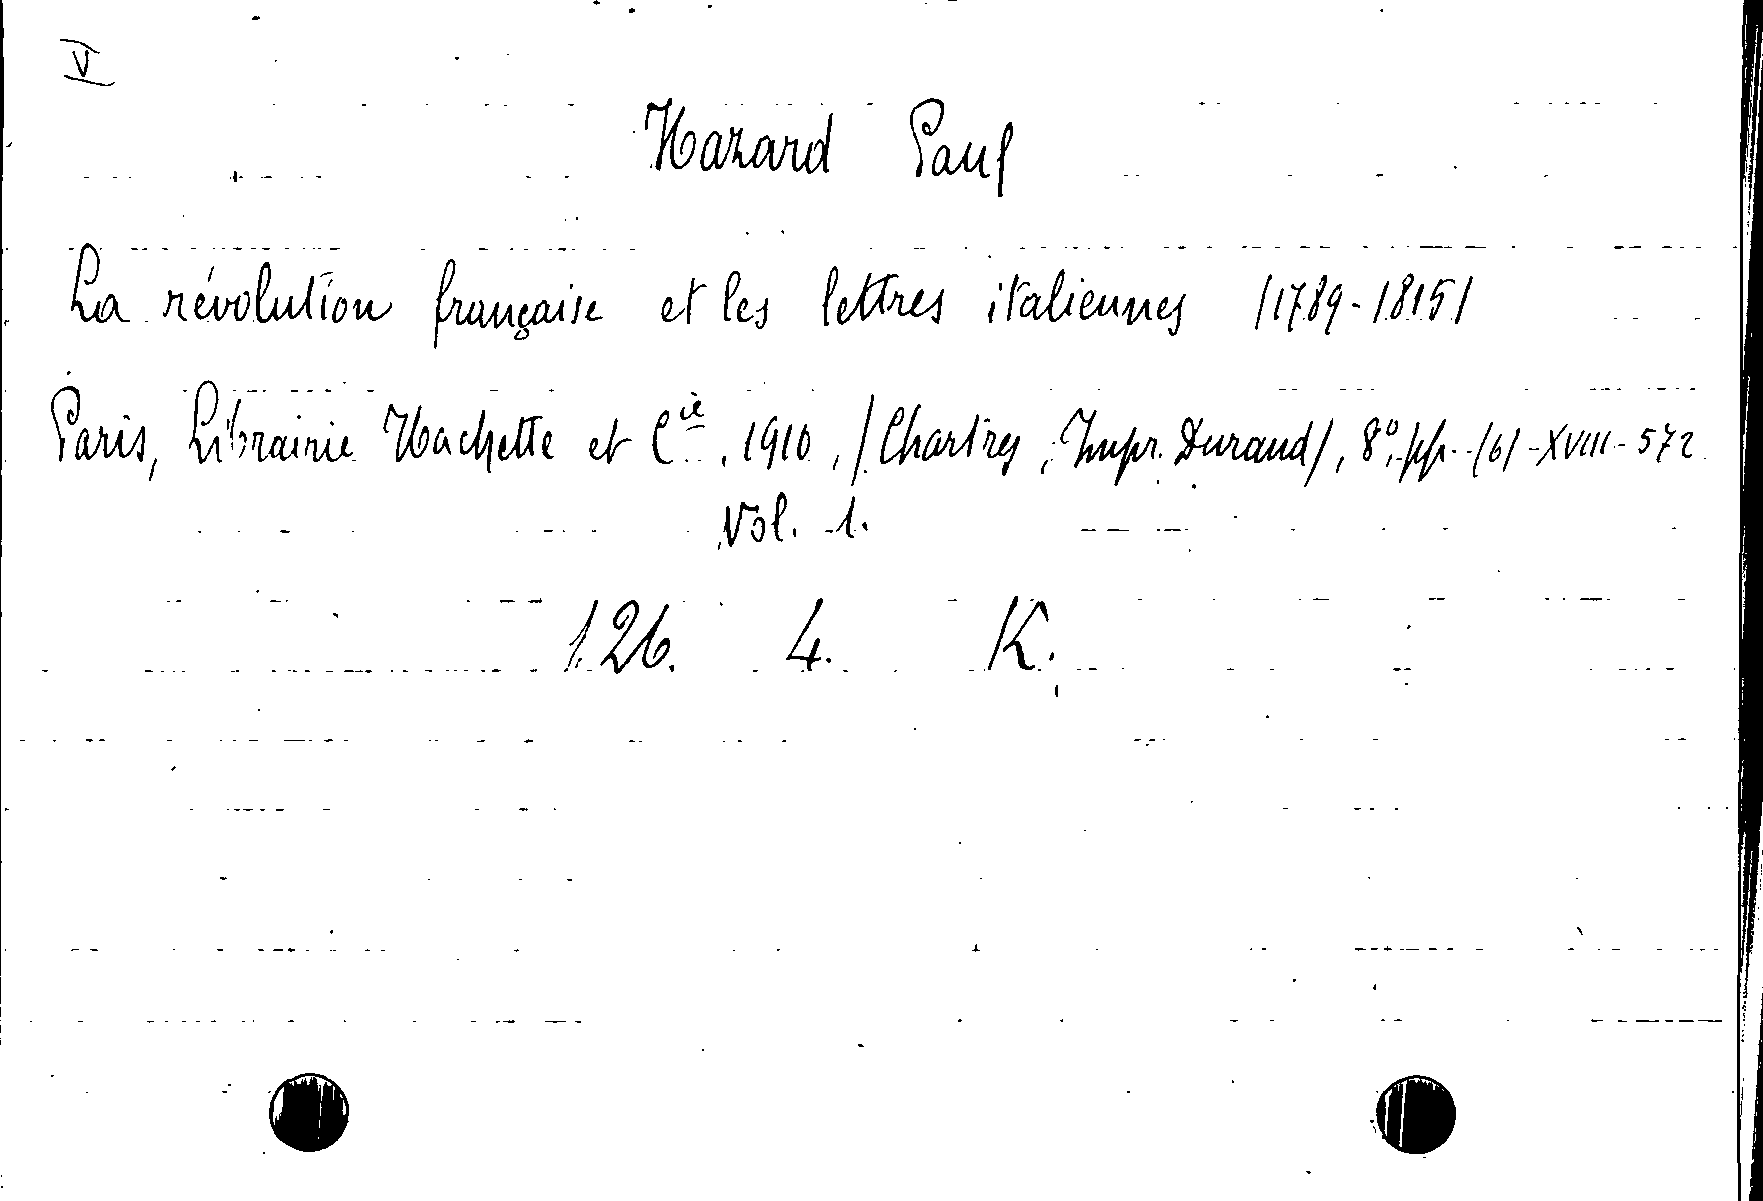 V
Hazard Paul
La révolution française et les lettres italiennes /1789-1815/
Paris, Librairie Hachette et Cie, 1910, /Chartres, Impr. Durand/, 8°, pp. /6/-XVIII-572
Vol. 1.
126. 4. K.